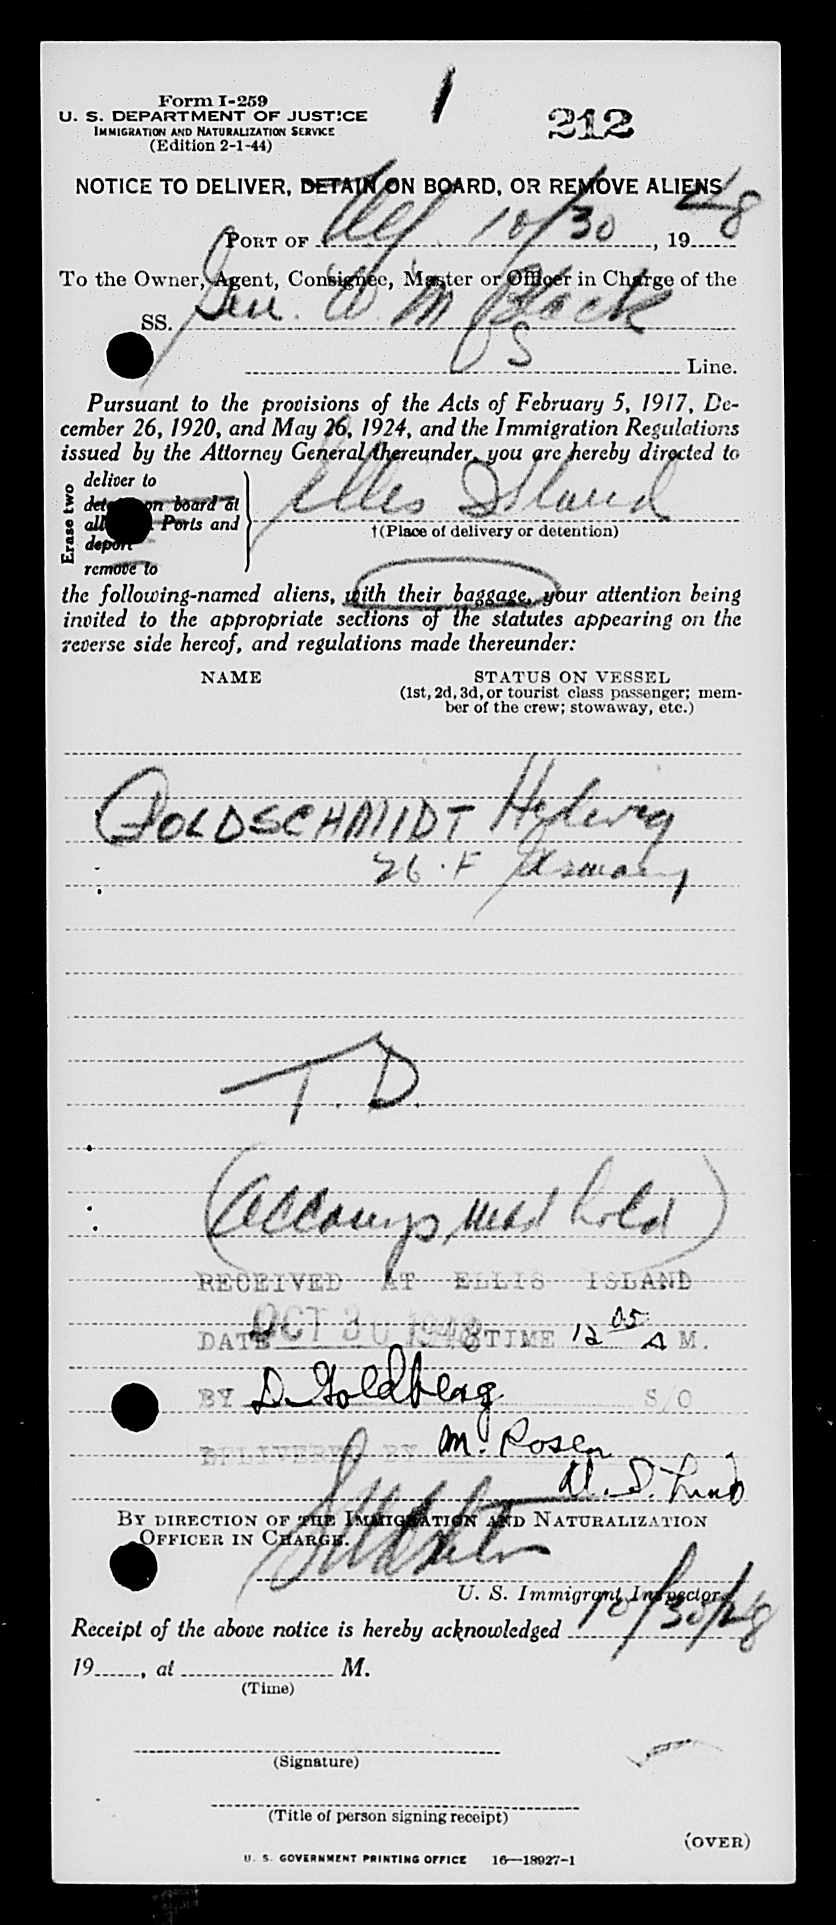 Form I-259
U. S. DEPARTMENT OF JUSTICE
IMMIGRATION AND NATURALIZATION SERVICE
(Edition 2-1-44)
1
212
NOTICE TO DELIVER, DETAIN ON BOARD, OR REMOVE ALIENS
PORT OF NY. 10/30, 1948
To the Owner, Agent, Consignee, Master or Officer in Charge of the
SS. Gen. W. M Black
US Line.
Pursuant to the provisions of the Acts of February 5, 1917, De-
cember 26, 1920, and May 26, 1924, and the Immigration Regulations
issued by the Attorney General thereunder, you are hereby directed to
Erase two
deliver to
on board at
Ports and
deport
remove to
Ellis Island
†(Place of delivery or detention)
the following-named aliens, with their baggage, your attention being
invited to the appropriate sections of the statutes appearing on the
reverse side hereof, and regulations made thereunder:
NAME
STATUS ON VESSEL
(1st, 2d, 3d, or tourist class passenger; mem-
ber of the crew; stowaway, etc.)
GOLDSCHMIDT Hedwig
26 · F Germany
T. D.
(accomp med hold)
RECEIVED AT ELLIS ISLAND
DATE OCT 30 1948 TIME 12 05 A M.
BY D. Goldberg S/O
DELIVERED BY M. Rosen
BY DIRECTION OF THE IMMIGRATION AND NATURALIZATION
OFFICER IN CHARGE.
U. S. Immigrant Inspector.
Receipt of the above notice is hereby acknowledged 10/30/48
19......, at .................... M.
(Time)
(Signature)
(Title of person signing receipt)
(OVER)
U. S. GOVERNMENT PRINTING OFFICE 16—18927-1